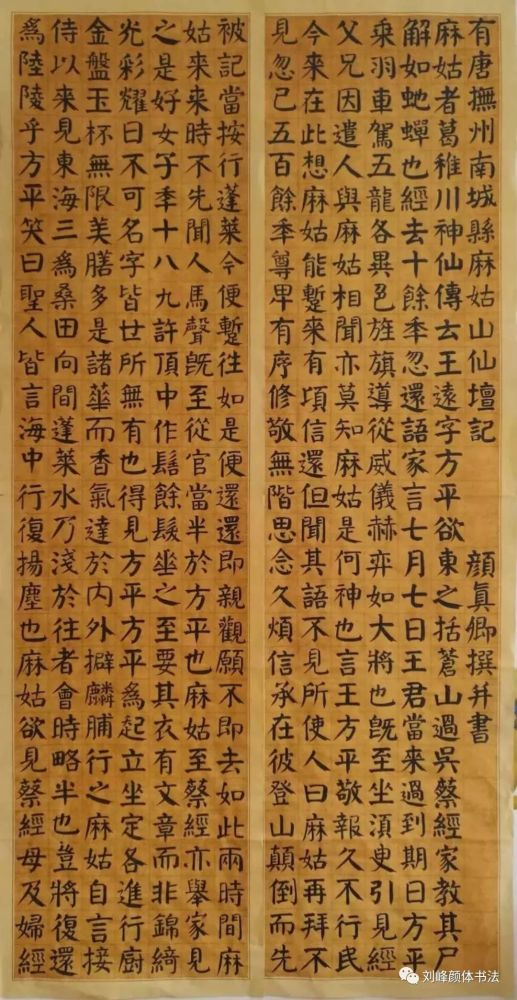 有唐撫州南城縣麻姑山仙壇記 顔眞卿撰并書
麻姑者葛稚川神仙傳云王遠字方平欲東之括蒼山過吳蔡經家教其尸
解如虵蟬也經去十餘秊忽還語家言七月七日王君當來過到期日方平
乗羽車駕五龍各異色旌旗導從威儀赫弈如大將也旣至坐湏臾引見經
父兄因遣人與麻姑相聞亦莫知麻姑是何神也言王方平敬報久不行民
今來在此想麻姑能蹔來有頃信還但聞其語不見所使人曰麻姑再拜不
見忽已五百餘秊尊卑有序修敬無階思念久煩信承在彼登山顛倒而先
被記當按行蓬萊今便蹔往如是便還還即親觀願不即去如此兩時間麻
姑來來時不先聞人馬聲旣至從官當半於方平也麻姑至蔡經亦舉家見
之是好女子秊十八九許頂中作髻餘髮垂之至要其衣有文章而非錦綺
光彩耀日不可名字皆世所無有也得見方平方平爲起立坐定各進行廚
金盤玉杯無限美膳多是諸華而香氣達於内外擗麟脯行之麻姑自言接
侍以來見東海三爲桑田向間蓬萊水乃淺於往者會時略半也豈將復還
爲陸陵乎方平笑曰聖人皆言海中行復揚塵也麻姑欲見蔡經母及婦經
刘峰颜体书法